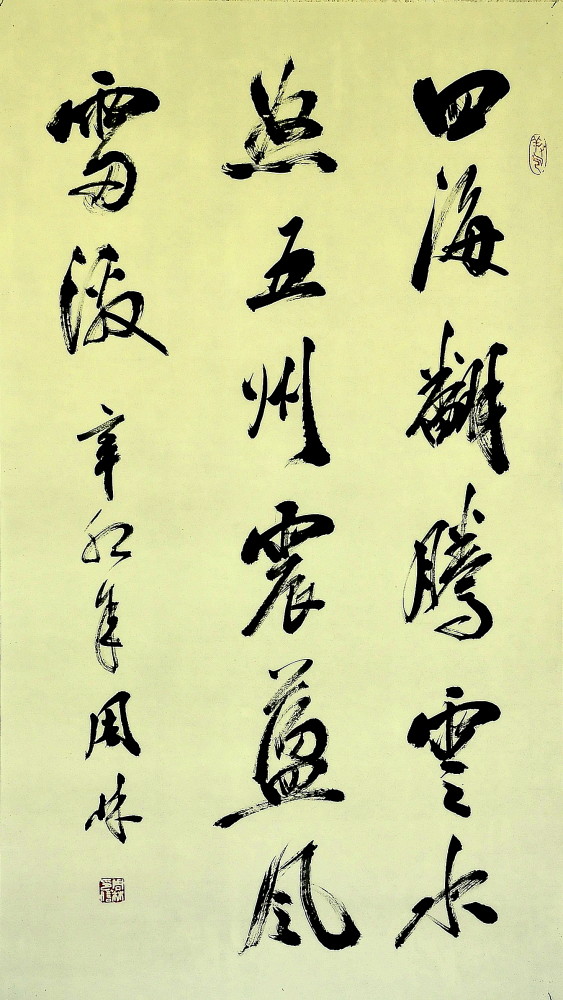 四海翻騰雲水
怒五州震盪風
雷激
辛年周林